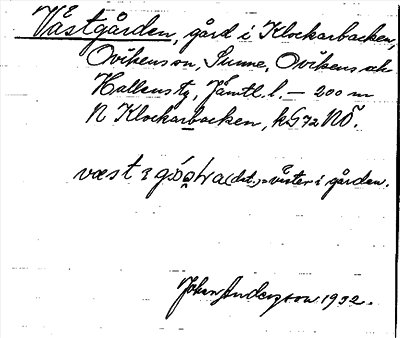 Västgården, gård i Klockarbacken,
Ovikens sn, Sunne, Ovikens och
Hallens tg, Jämtl. l. — 200 m
N Klockarbacken, k G 72 NÖ.
väst i (dat.) = väster i gården.
Johan Anderzon 1932.